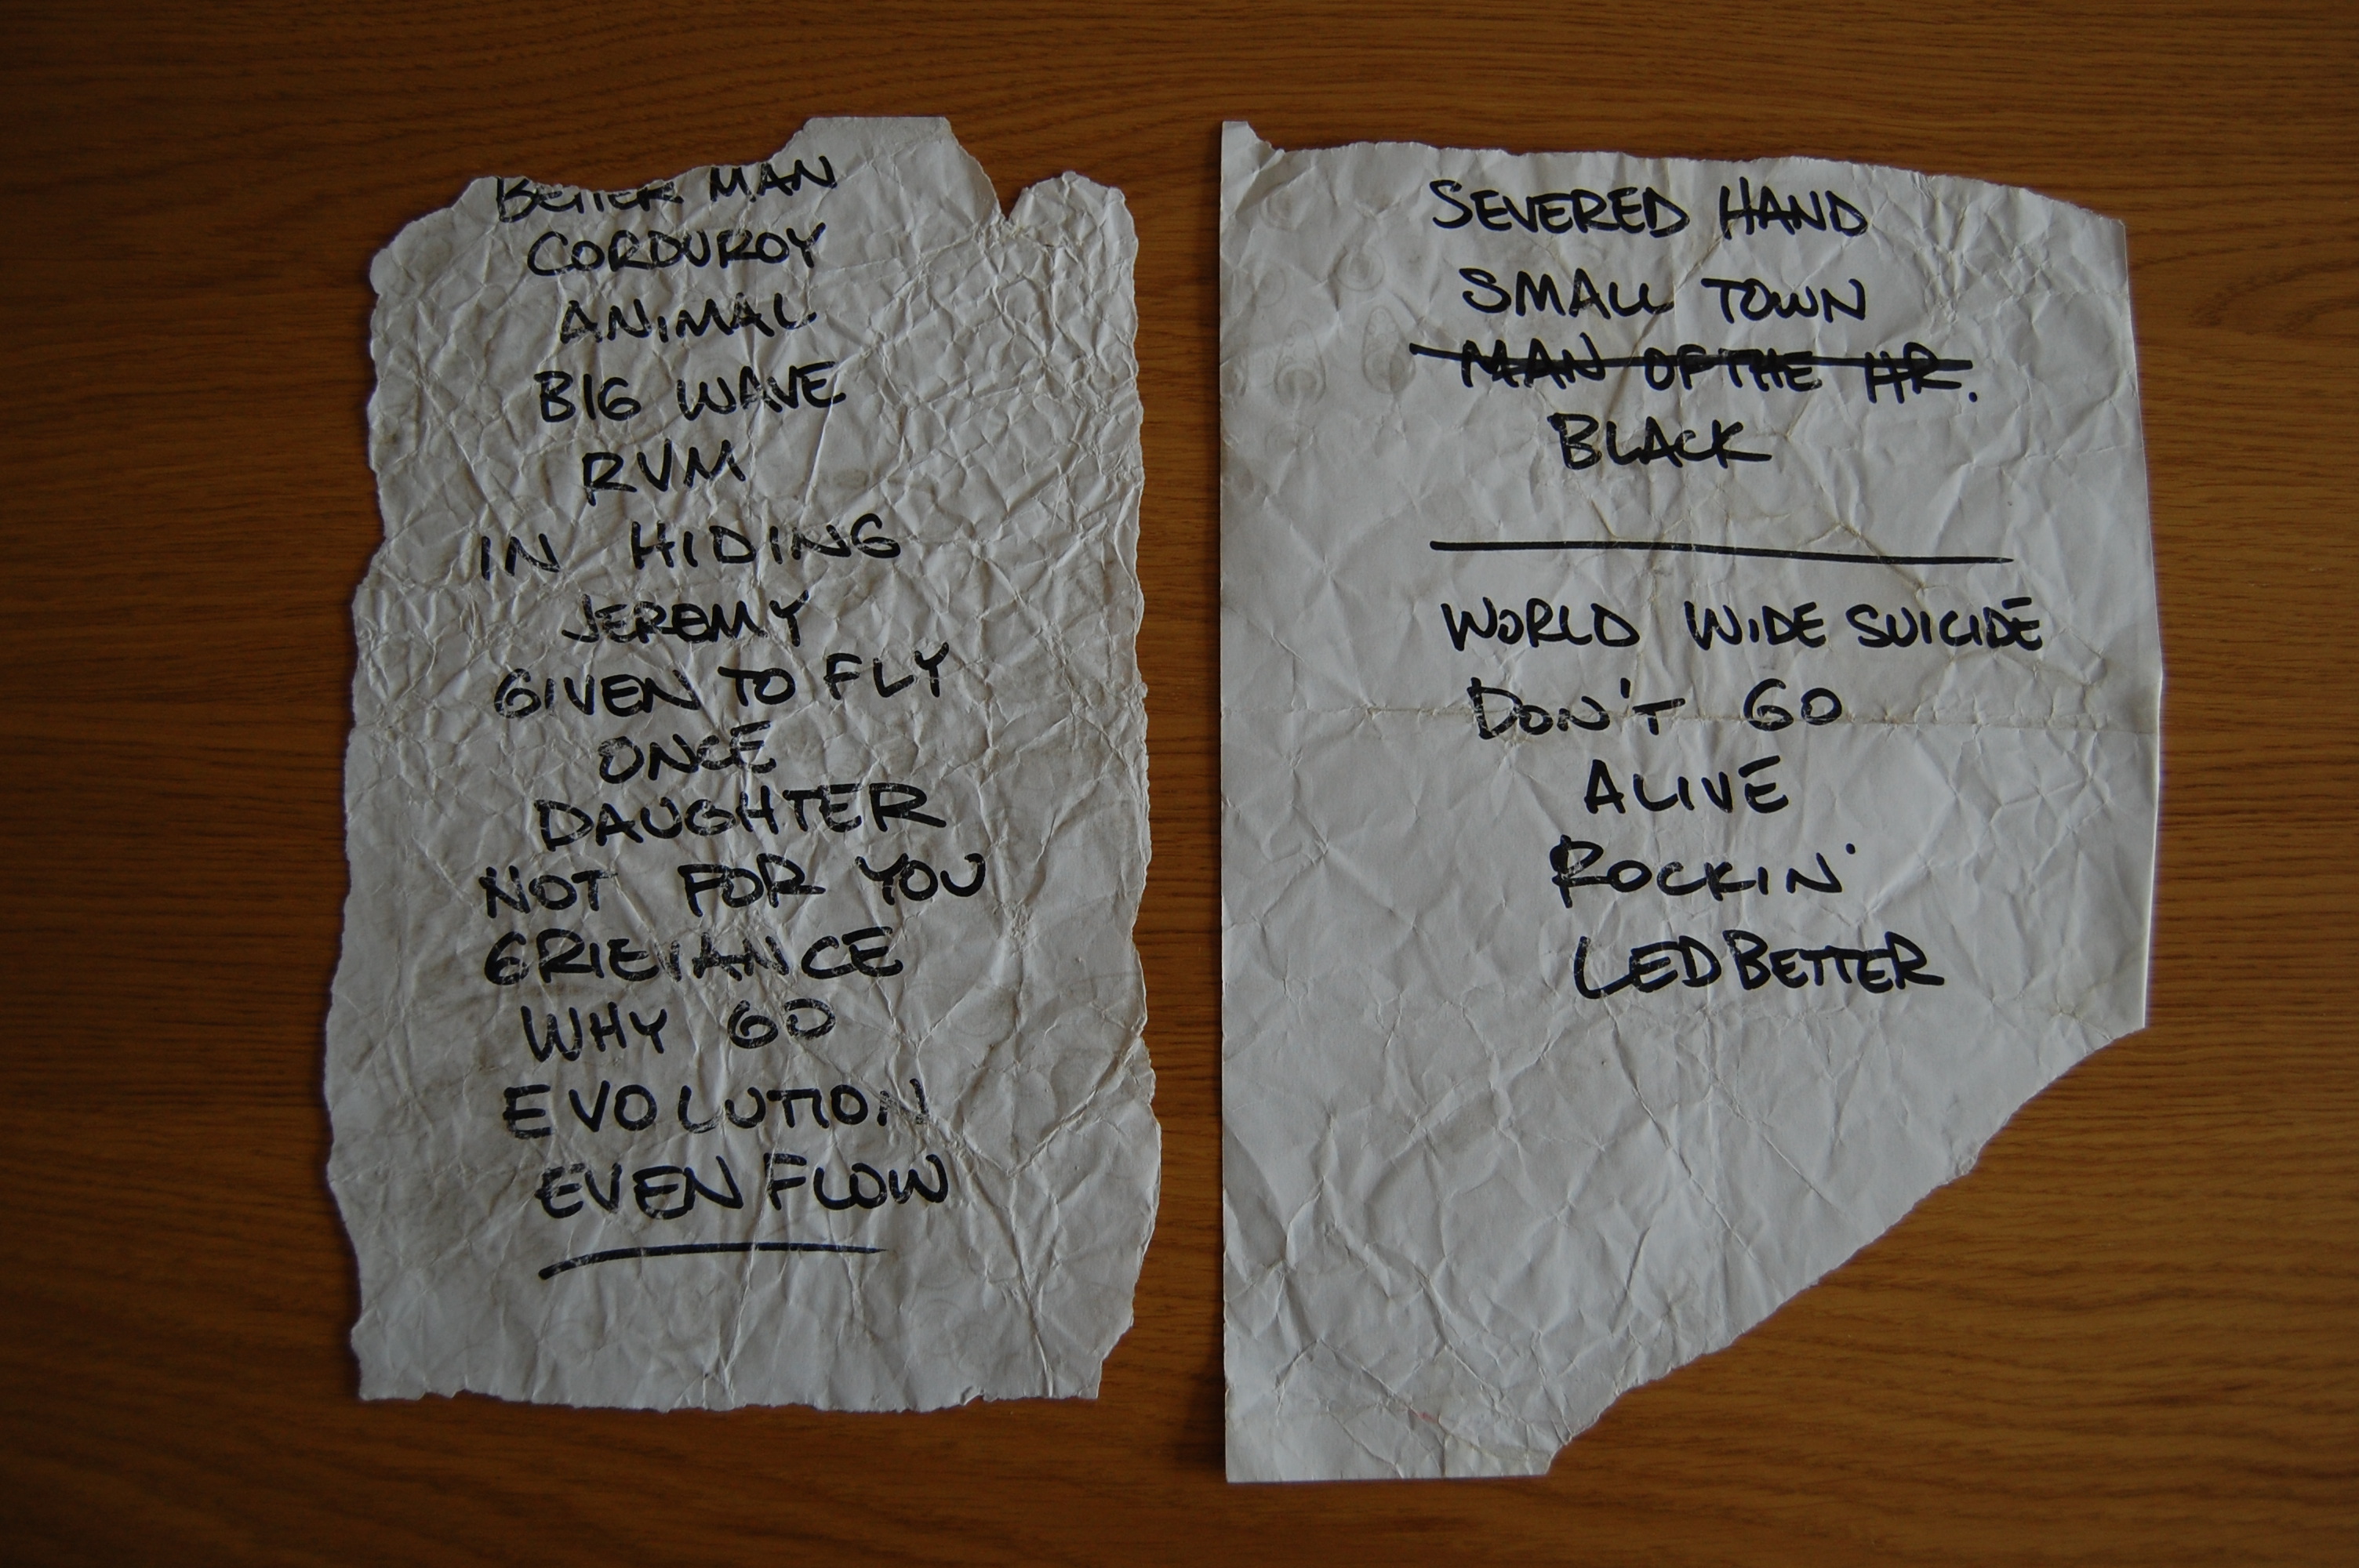 BETTER MAN
CORDUROY
ANIMAL
BIG WAVE
RVM
IN HIDING
JEREMY
GIVEN TO FLY
ONCE
DAUGHTER
NOT FOR YOU
GRIEVANCE
WHY GO
EVOLUTION
EVEN FLOW
SEVERED HAND
SMALL TOWN
MAN OF THE HR.
BLACK
WORLD WIDE SUICIDE
DON'T GO
ALIVE
ROCKIN'
LEDBETTER